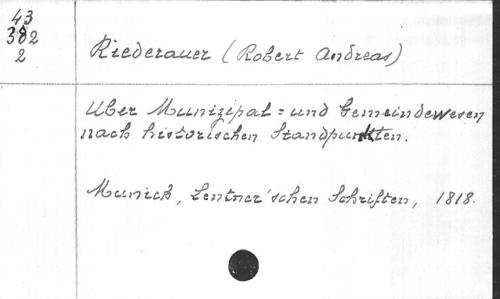 43
382
2
Riederauer (Robert Andreas)
Uber Munizipal = und Gemeindewesen
nach historischen Standpunkten.
Munich, Lentner'schen Schriften, 1818.